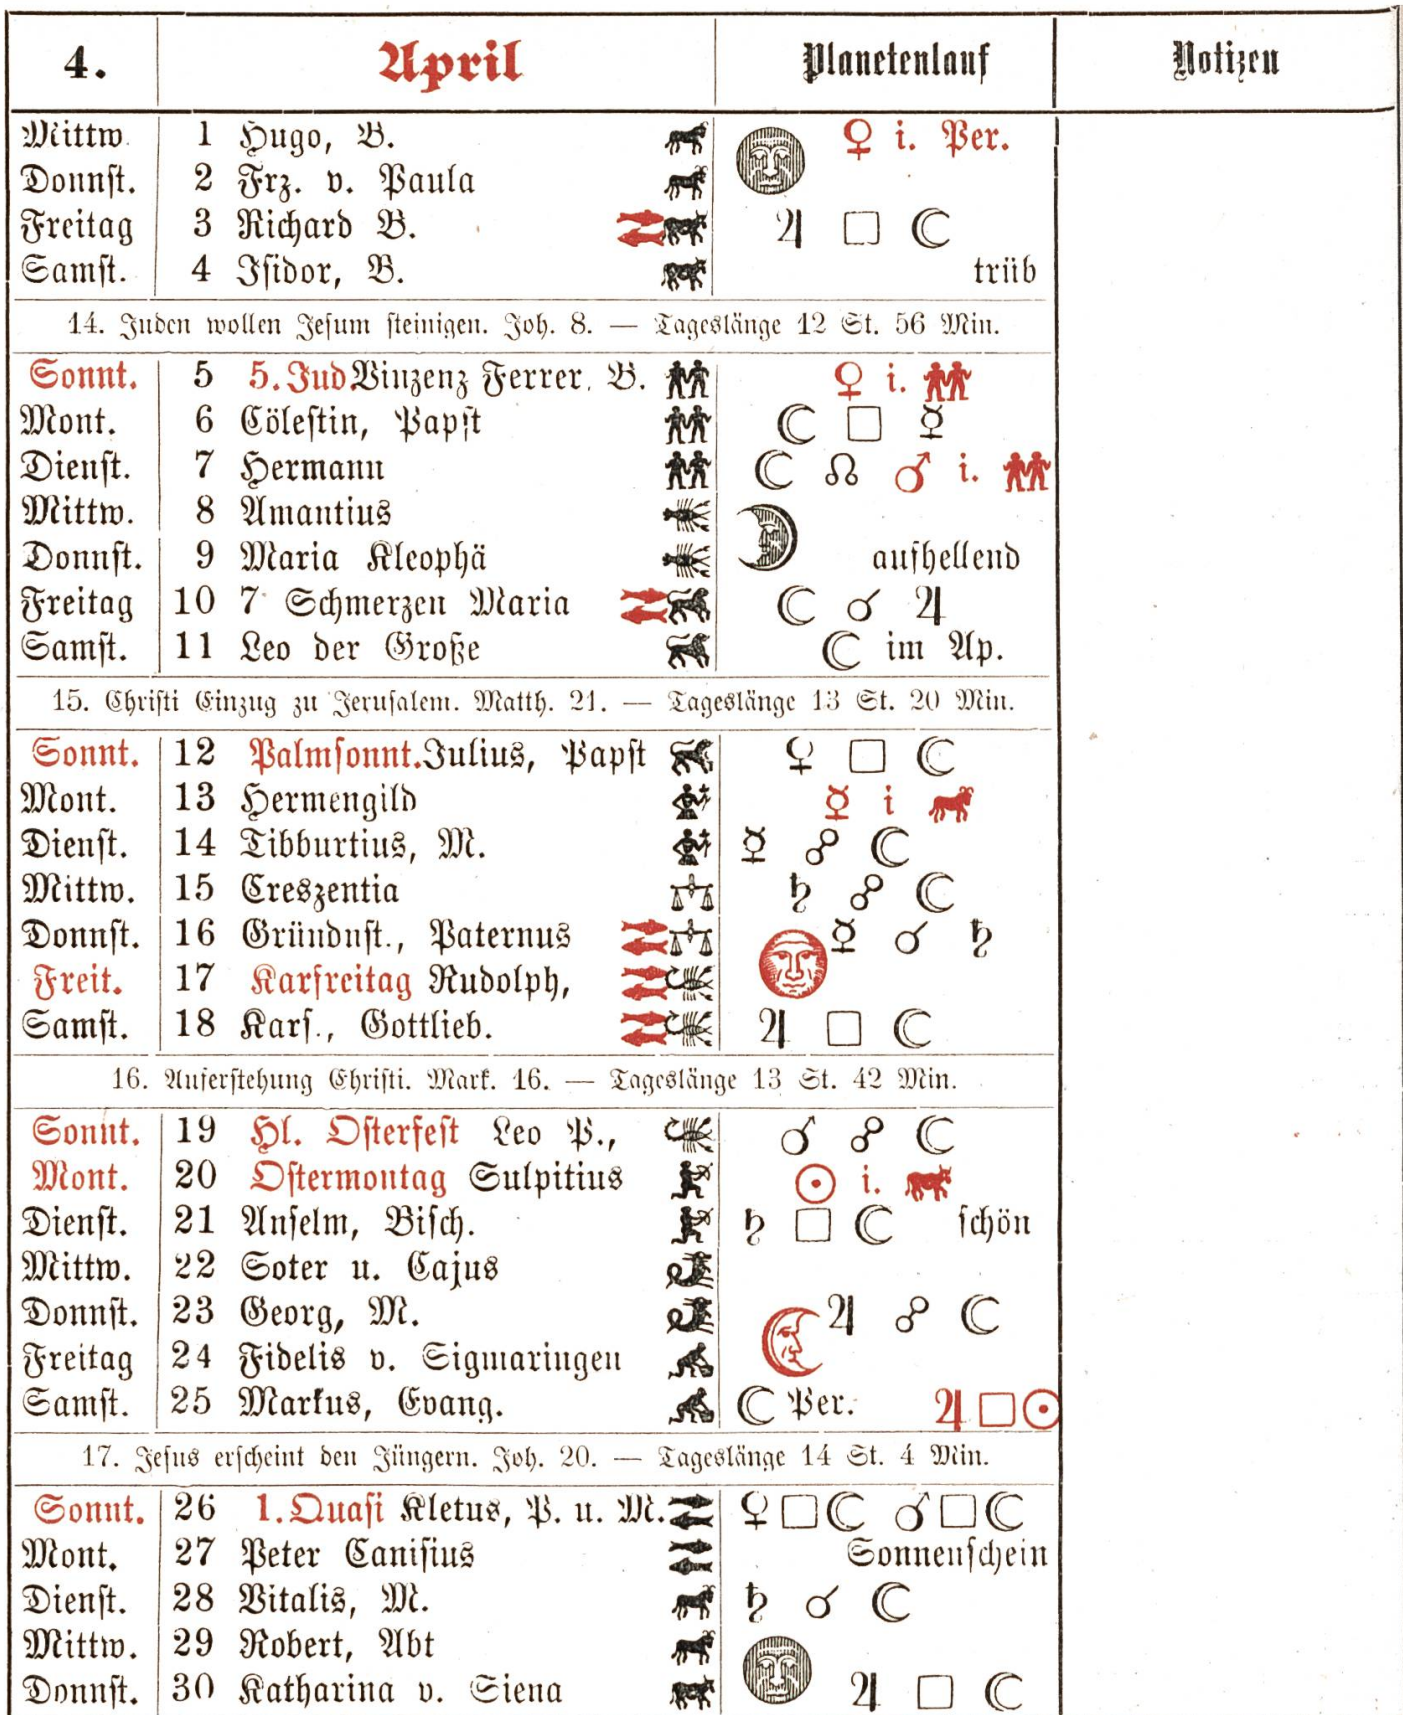 4. April Planetenlauf Notizen
Mittw. 1 Hugo, B. ♀ i. Per.
Donnst. 2 Frz. v. Paula
Freitag 3 Richard B. ♃ □ ☾
Samst. 4 Isidor, B. trüb
14. Juden wollen Jesum steinigen. Joh. 8. — Tageslänge 12 St. 56 Min.
Sonnt. 5 5. Jud Vinzenz Ferrer, B. ♀ i.
Mont. 6 Cölestin, Papst ☾ □ ☿
Dienst. 7 Hermann ☾ ☊ ♂ i.
Mittw. 8 Amantius
Donnst. 9 Maria Kleophä aufhellend
Freitag 10 7 Schmerzen Maria ☾ ☌ ♃
Samst. 11 Leo der Große ☾ im Ap.
15. Christi Einzug zu Jerusalem. Matth. 21. — Tageslänge 13 St. 20 Min.
Sonnt. 12 Palmsonnt. Julius, Papst ♀ □ ☾
Mont. 13 Hermengild ☿ i
Dienst. 14 Tibburtius, M. ☿ ☍ ☾
Mittw. 15 Creszentia ♄ ☍ ☾
Donnst. 16 Gründnst., Paternus ☿ ☌ ♄
Freit. 17 Karfreitag Rudolph,
Samst. 18 Kars., Gottlieb. ♃ □ ☾
16. Auferstehung Christi. Mark. 16. — Tageslänge 13 St. 42 Min.
Sonnt. 19 Hl. Osterfest Leo P., ♂ ☍ ☾
Mont. 20 Ostermontag Sulpitius ☉ i.
Dienst. 21 Anselm, Bisch. ♄ □ ☾ schön
Mittw. 22 Soter u. Cajus
Donnst. 23 Georg, M. ♃ ☍ ☾
Freitag 24 Fidelis v. Sigmaringen
Samst. 25 Markus, Evang. ☾ Per. ♃ □ ☉
17. Jesus erscheint den Jüngern. Joh. 20. — Tageslänge 14 St. 4 Min.
Sonnt. 26 1. Quasi Kletus, P. u. M. ♀ □ ☾ ♂ □ ☾
Mont. 27 Peter Canisius Sonnenschein
Dienst. 28 Vitalis, M. ♄ ☌ ☾
Mittw. 29 Robert, Abt
Donnst. 30 Katharina v. Siena ♃ □ ☾